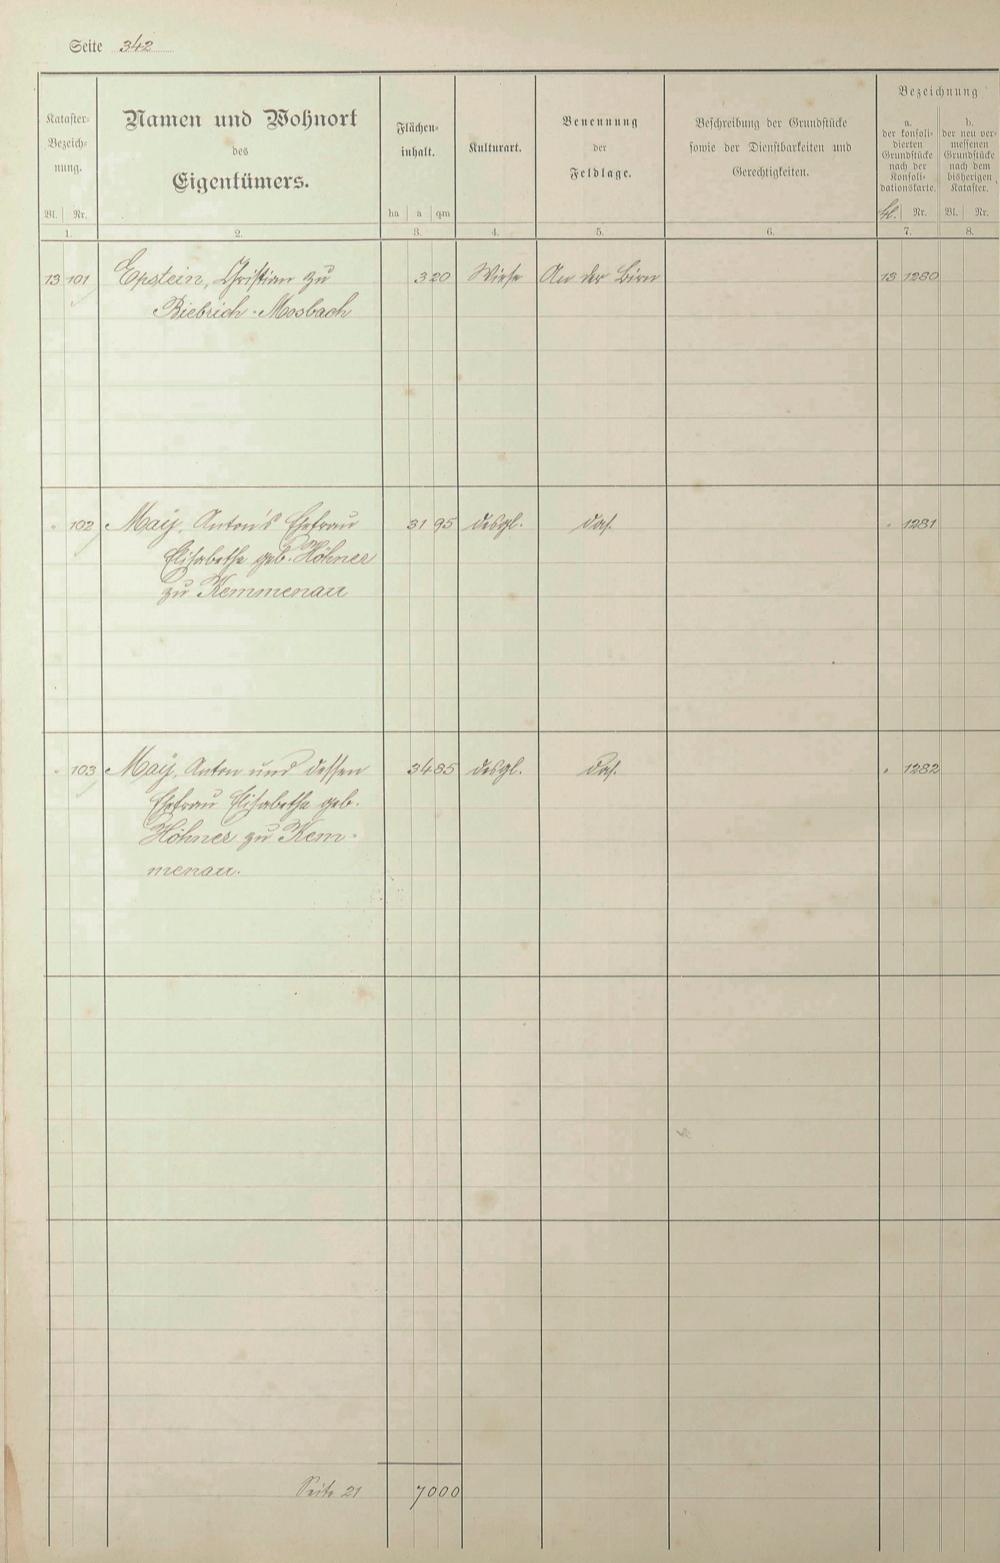 Seite 342
Kataster-
Bezeich-
nung.
Bl. Nr.
1.
Namen und Wohnort
des
Eigentümers.
2.
Flächen-
inhalt.
ha a qm
3.
Kulturart.
4.
Benennung
der
Feldlage.
5.
Beschreibung der Grundstücke
sowie der Dienstbarkeiten und
Gerechtigkeiten.
6.
Bezeichnung
a.
der konsoli-
dierten
Grundstücke
nach der
Konsoli-
dationskarte.
Bl. Nr.
7.
b.
der neu ver-
messenen
Grundstücke
nach dem
bisherigen
Kataster.
Bl. Nr.
8.
13 101 Epstein, Christian zu 3 20 Wiese An der Birn 13 1280
Biebrich-Mosbach
" 102 May, Anton's Ehefrau 31 95 desgl. das. " 1281
Elisabethe geb. Höhner
zu Kemmenau
" 103 May, Anton und dessen 34 85 desgl. das. " 1282
Ehefrau Elisabethe geb.
Höhner zu Kem-
menau.
Seite 21 70 00